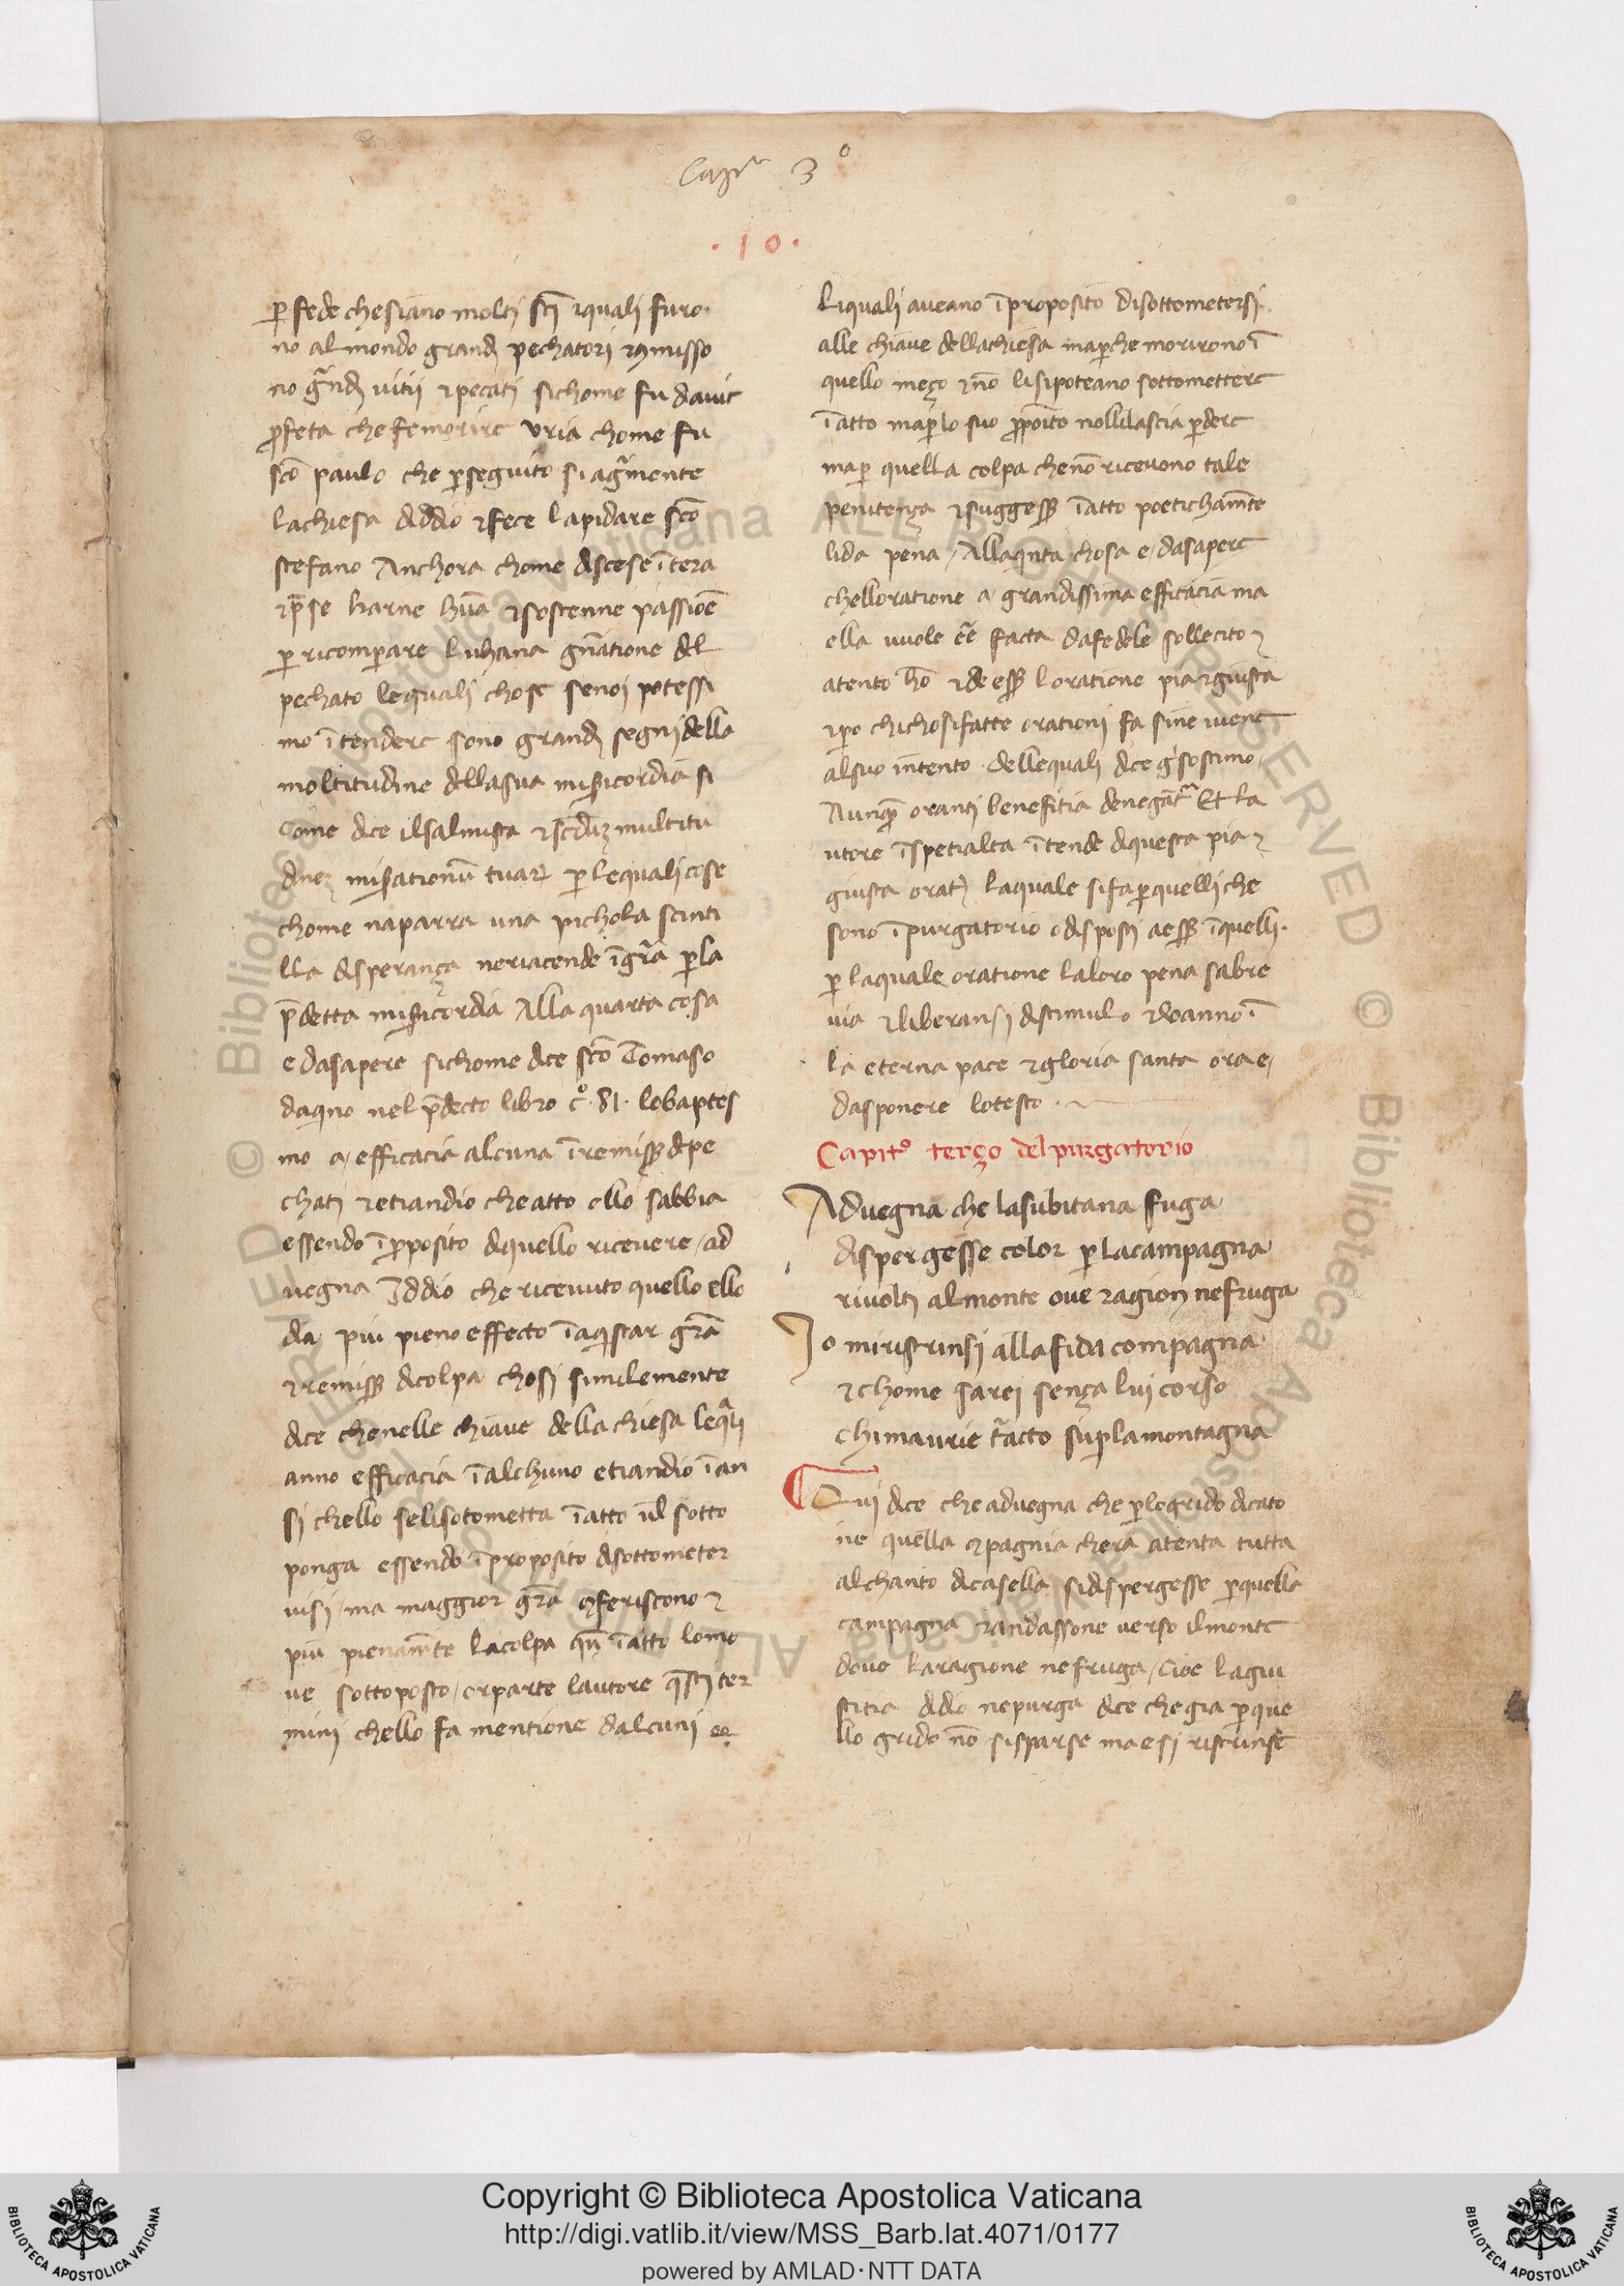 Capitº 3º
. 10 .
ꝑ fede che siano molti sc̄i ⁊ quali furo
no al mondo grandi pechatori ⁊ ꝯmisso
no gr̄ndi uitii ⁊ pecati sichome fu dauit
ꝓfeta che fe morire vria chome fu
sc̄o paulo che ꝑseguito si agr̄mente
la chiesa diddio ⁊ fece lapidare sc̄o
stefano Anchora chome discese ī tera
⁊ p̄se harne hūa ⁊ sostenne passiōe
ꝑ ricomperare luhana gn̄atione del
pechato lequali chose se noi potessi
mo ītendere sono grandi segni della
moltitudine della sua misericordia si
come dice il salmista ⁊ scd̄uz multitu
dinez misationū tuaꝝ ꝑ lequali cose
chome naparra una pichola scinti
lla disperança neriacende ī gr̄a ꝑ la
p̄detta misericordia Alla quarta cosa
e da sapere sichome dice sc̄o Tomaso
daqino nel p̄decto libro cº. 81. lo baptes
mo a efficacia alcuna ī remissiōe di pe
chati ⁊ etiandio che atto ello sabbia
essendo ī ꝓposito di quello riceuere / ad
uegna Iddio che riceuuto quello ello
da piu pieno effecto ī aqistar gr̄a
⁊ remissiōe di colpa chosi similemente
dice che nelle chiaue della chiesa leqali
anno efficacia ī alchuno etiandio īan
zi chello se li sotometta ī atto
ponga essendo ī proposito di sottometer
uisi / ma maggior gr̄a ꝯferiscono ⁊
piu pienam̄te la colpa qn̄ ī atto lomo
ue sottoposto / or parte lautore q̄sti ter
mini chello fa mentione dalcuni
li quali aueano ī proposito di sottometersi
alle chiaue della chiesa ma ꝑche morirono ī
quello meço ⁊ nō li si poteano sottomettere
ī atto ma ꝑ lo suo ꝓpoīto nolli lascia ꝑdere
ma ꝑ quella colpa che nō riceuono tale
penitença ⁊ suggessiōe ī atto poeticham̄te
li da pena / Alla qinta chosa e / da sapere
chelloratione a grandissima efficacia ma
ella uuole eēr facta da fedele sollecito ⁊
atento hō ⁊ de esser loratione pia ⁊ giusta
⁊ ꝑo chi chosi fatte orationi fa sine uiene
al suo intento . delle quali dice gsostimo
Nunqȝ oranti benefitia denegat̄r Et la
utore ī spetialta ītende di questa pia ⁊
giusta orat̄ laquale si fa ꝑ quelli che
sono ī purgatorio o disposti a esser ī quelli .
ꝑ laquale oratione la loro pena sabre
uia ⁊ liberansi di stimulo ⁊ danno ī
la eterna pace ⁊ gloria santa ora e /
da sponere lo testo .
Capitº terço del purgatorio
Aduegna che la subitana fuga
dispergesse color ꝑ la campagna
riuolti al monte oue ragion ne fruga
Io mi ristrinsi alla fida compagna
⁊ chome sarei sença lui corso
chi maurie tr̄acto su ꝑ la montagna
Qui dice che aduegna che ꝑ lo grido di cato
ne quella ꝯpagnia chera atenta tutta
al chanto di casella si dispergesse ꝑ quella
campagna ⁊ andassone uerso il monte
doue la ragione ne fruga / cioe la giu
stitia di dio ne purga dice che gia ꝑ que
llo grido nō si sparse ma e si ristrinse
Copyright © Biblioteca Apostolica Vaticana
http://digi.vatlib.it/view/MSS_Barb.lat.4071/0177
powered by AMLAD·NTT DATA
BIBLIOTECA APOSTOLICA VATICANA
BIBLIOTECA APOSTOLICA VATICANA